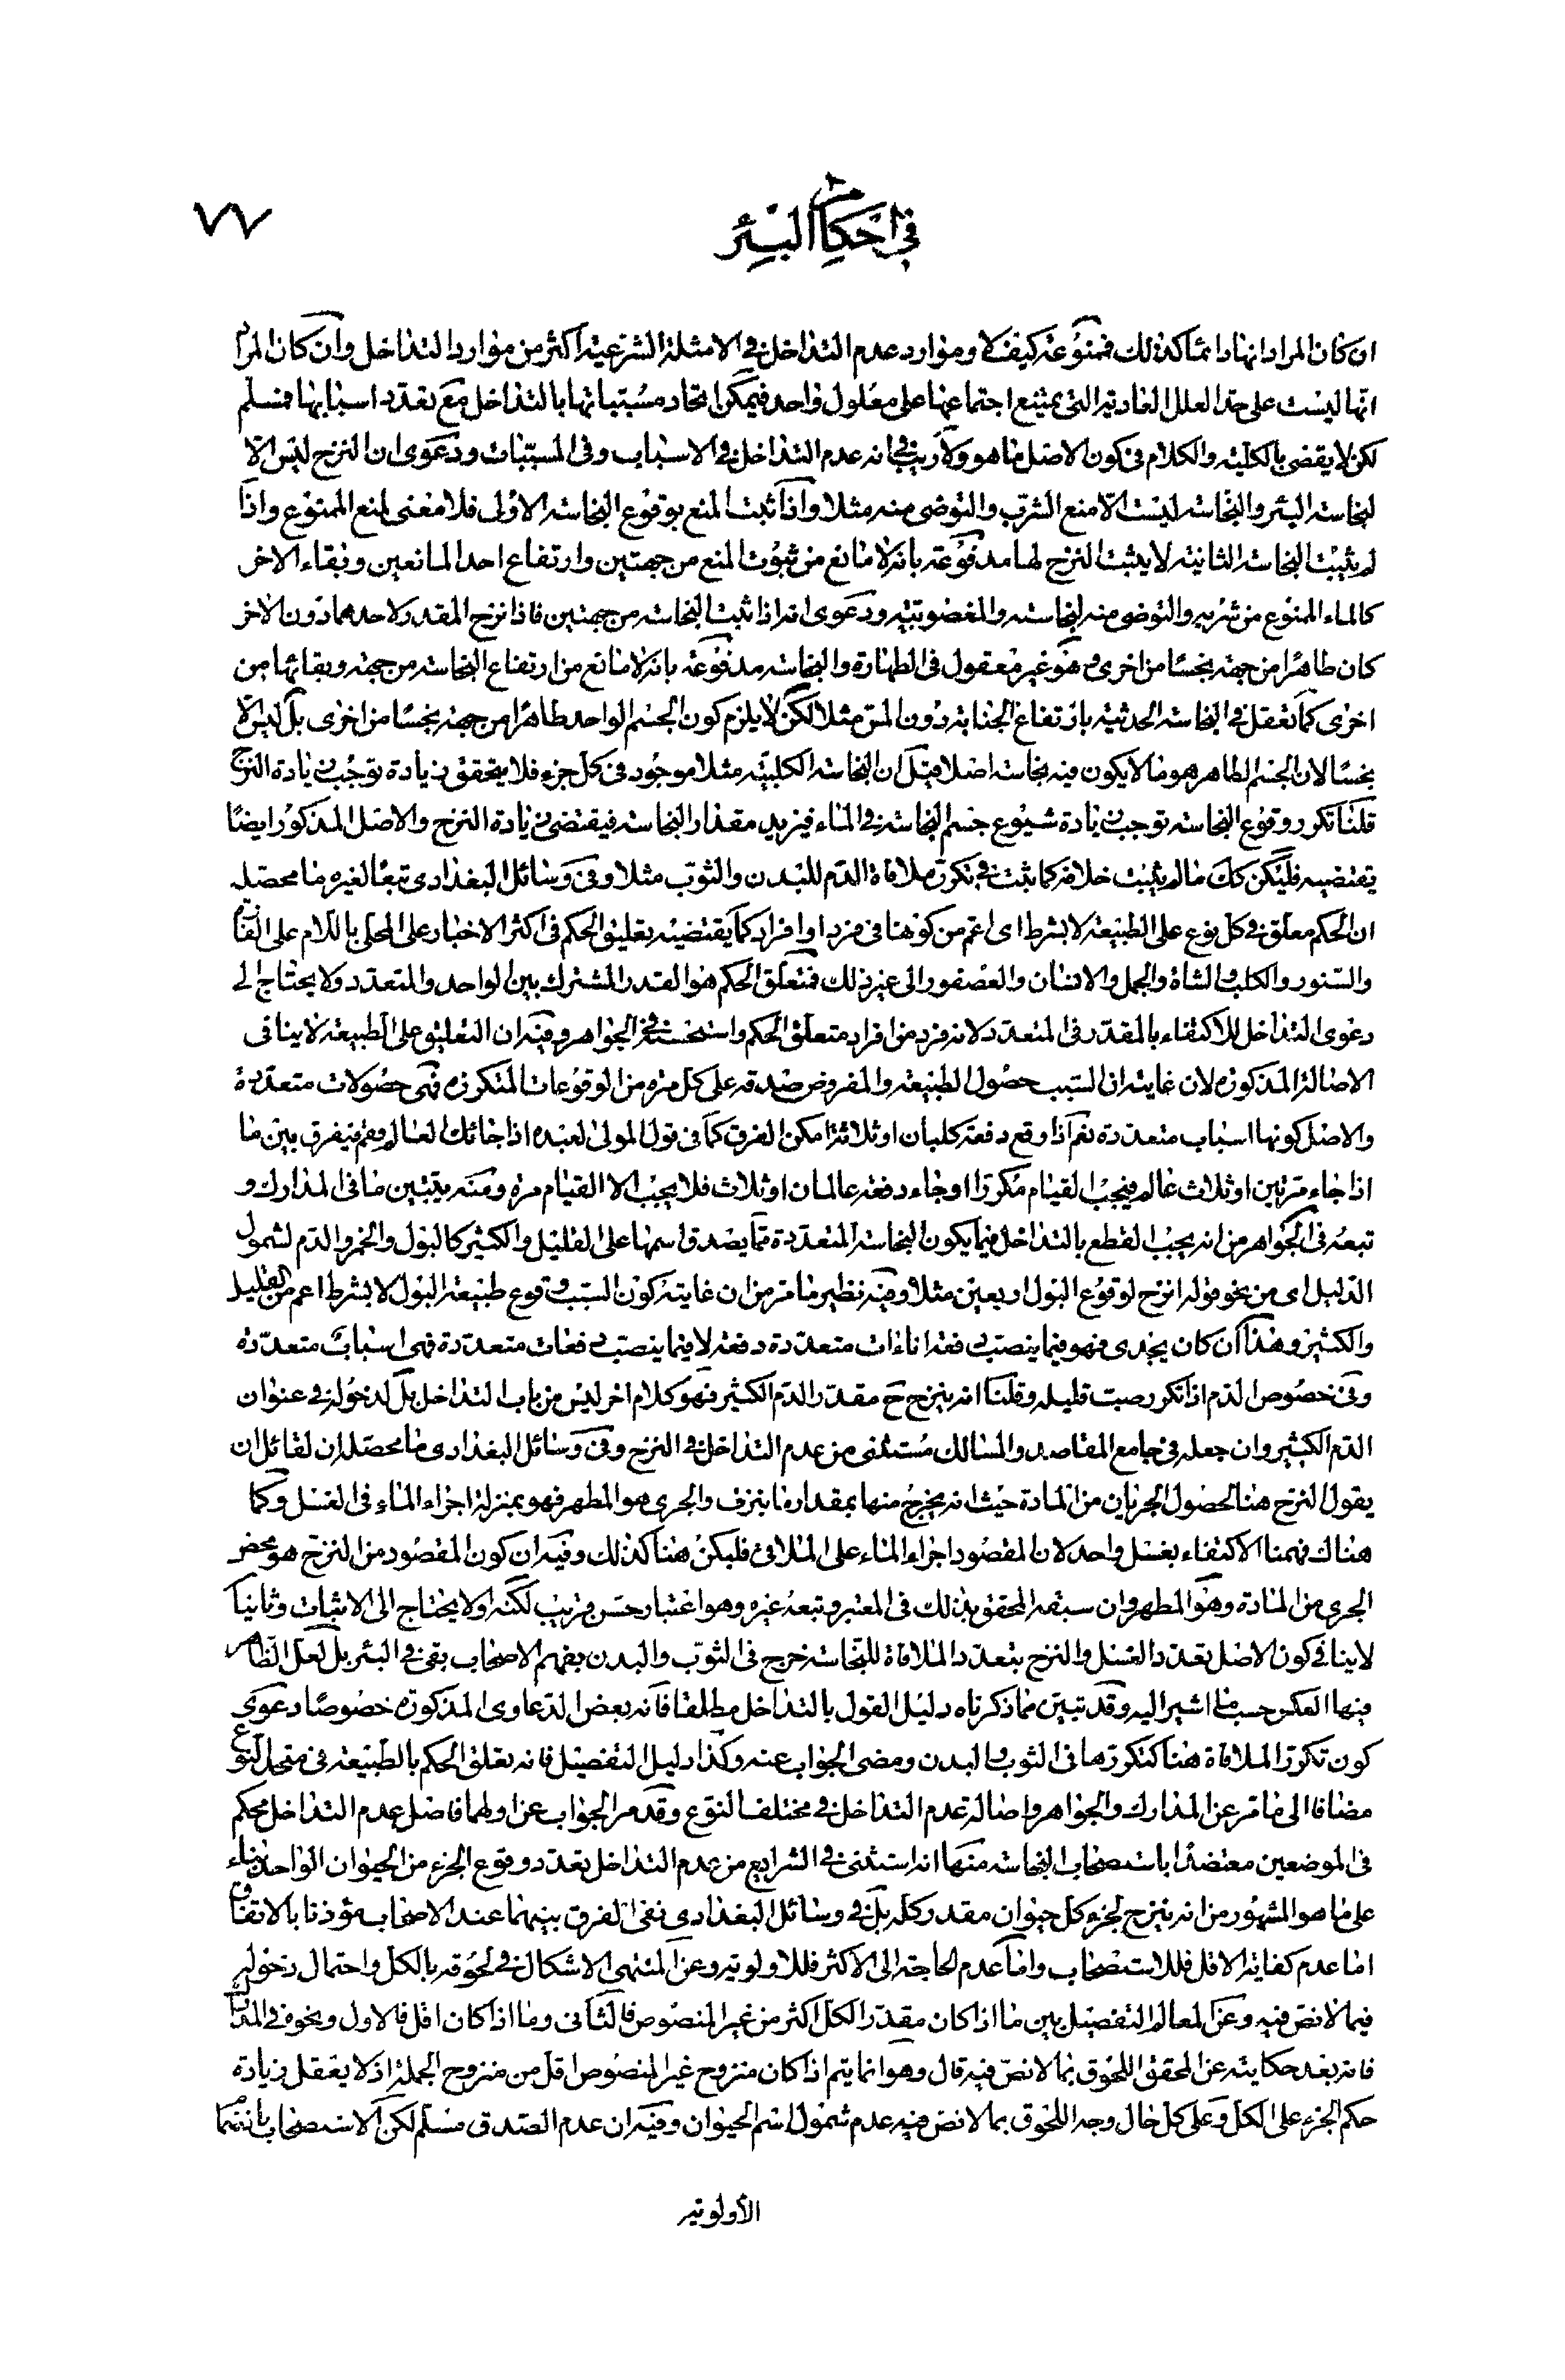 في احكام البئر
٧٧
ان كان المراد انها دائما كذلك فممنوعة كيف لا وموارد عدم التداخل في الامثلة الشرعية اكثر من موارد التداخل وان كان المراد
انها ليست على حد العلل العادية التي يمتنع اجتماعها على معلول واحد فيمكن اتحاد مسبباتها بالتداخل مع تعدد اسبابها فمسلم
لكن لا يقضى بالكلية والكلام في كون الاصل ما هو ولا ريب في انه عدم التداخل في الاسباب وفي المسببات ودعوى ان النزح ليس الا
لنجاسة البئر والنجاسة ليست الا منع الشرب والتوضى منه مثلا واذا ثبت المنع بوقوع النجاسة الاولى فلا معنى لمنع الممنوع واذا
لم يثبت النجاسة الثانية لا يثبت النزح لها مدفوعة بانه لا مانع من ثبوت المنع من جهتين وارتفاع احد المانعين وبقاء الاخر
كالماء الممنوع من شربه والتوضى منه لنجاسته والمغصوبية ودعوى انه اذا ثبت النجاسة من جهتين فاذا نزح المقدر لاحدهما دون الاخر
كان طاهرا من جهة نجسا من اخرى وهو غير معقول في الطهارة والنجاسة مدفوعة بانه لا مانع من ارتفاع النجاسة من جهة وبقائها من
اخرى كما تعقل في النجاسة الحدثية بارتفاع الجنابة دون المس مثلا لكن لا يلزم كون الجسم الواحد طاهرا من جهة نجسا من اخرى بل ليس الا
نجسا لان الجسم الطاهر هو ما لا يكون فيه نجاسة اصلا فيل ان النجاسة الكلبية مثلا موجود في كل جزء فلا يتحقق زيادة توجب زيادة النزح
قلنا تكرر وقوع النجاسة توجب زيادة شيوع جسم النجاسة في الماء فيزيد مقدار النجاسة فيقتضى زيادة النزح والاصل المذكور ايضا
يقتضيه فليكن كك ما لم يثبت خلافه كما ثبت في تكرر ملاقاة الدم للبدن والثوب مثلا وفي وسائل البغدادى تبعا لغيره ما محصله
ان الحكم معلق في كل نوع على الطبيعة لا بشرط اى اعم من كونها في فرد او افراد كما يقتضيه تعليق الحكم في اكثر الاخبار على المحلى باللام على الفأرة
والسنور والكلب والشاة والجمل والانسان والعصفور الى غير ذلك فمتعلق الحكم هو القدر المشترك بين الواحد والمتعدد ولا يحتاج الى
دعوى التداخل للاكتفاء بالمقدر في المتعدد لانه فرد من افراد متعلق الحكم واستحسنه في الجواهر وفيه ان التعليق على الطبيعة لا ينافى
الاصالة المذكورة لان غايته ان السبب حصول الطبيعة والمفروض صدقه على كل مرة من الوقوعات المتكررة فهى حصولات متعددة
والاصل كونها اسباب متعددة نعم اذا وقع دفعة كلبان او ثلاثة امكن الفرق كما في قول المولى لعبده اذا جائك العالم فقم فيفرق بين ما
اذا جاء مرتين او ثلاث عالم فيجب القيام مكررا او جاء دفعة عالمان او ثلاث فلا يجب الا القيام مرة ومنه يتبين ما في المدارك و
تبعه في الجواهر من انه يجب القطع بالتداخل فيما يكون النجاسة المتعددة مما يصدق اسمها على القليل والكثير كالبول والخمر والدم لشمول
الدليل اى من نحو قوله انزح لوقوع البول اربعين مثلا وفيه نظير ما مر من ان غايته كون السبب وقوع طبيعة البول لا بشرط اعم من القليل
والكثير وهذا ان كان يجدى فهو فيما ينصب دفعة اناءات متعددة دفعة لا فيما ينصب دفعات متعددة فهى اسباب متعددة
وفي خصوص الدم اذا تكرر صبت قليله وقلنا انه ينزح ح مقدر الدم الكثير فهو كلام اخر ليس من باب التداخل بل لدخوله في عنوان
الدم الكثير وان جعله في جامع المقاصد والمسالك مستثنى من عدم التداخل في النزح وفي وسائل البغدادى ما محصله ان لقائل ان
يقول النزح هنا لحصول الجريان من المادة حيث انه يخرج منها بمقدار ما ينزف والجرى هو المطهر فهو بمنزلة اجراء الماء في الغسل وكما
هناك فهمنا الاكتفاء بغسل واحد لان المقصود اجراء الماء على الملاقى فليكن هنا كذلك وفيه ان كون المقصود من النزح هو محض
الجرى من المادة وهو المطهر وان سبقه المحقق بذلك في المعتبر وتبعه غيره وهو اعتبار حسن قريب لكنه اولا يحتاج الى الاثبات وثانيا
لا ينافى كون الاصل تعدد الغسل والنزح بتعدد الملاقاة للنجاسة خرج في الثوب والبدن بفهم الاصحاب بقى في البئر بل لعل الظاهر
فيها العكس حسب ما اشير اليه وقد تبين مما ذكرناه دليل القول بالتداخل مطلقا فانه بعض الدعاوى المذكورة خصوصا دعوى
كون تكرر الملاقاة هنا كتكررها في الثوب والبدن ومضى الجواب عنه وكذا دليل التفصيل فانه تعلق الحكم بالطبيعة في متحد النوع
مضافا الى ما مر عن المدارك والجواهر واصالة عدم التداخل في مختلف النوع وقد مر الجواب عن اولهما فاصل عدم التداخل محكم
في الموضعين معتضدا باستصحاب النجاسة منها انه استثنى في الشرايع من عدم التداخل تعدد وقوع الجزء من الحيوان الواحد بناء
على ما هو المشهور من انه ينزح لجزء كل حيوان مقدر كله بل في وسائل البغدادى نفى الفرق بينهما عند الاصحاب مؤذنا بالاتفاق
اما عدم كفاية الاقل فللاستصحاب واما عدم الحاجة الى الاكثر فللاولوية وعن المنتهى الاشكال في لحوقه بالكل واحتمال دخوله
فيما لا نص فيه وعن المعالم التفصيل بين ما اذا كان مقدر الكل اكثر من غير المنصوص فالثانى وما اذا كان اقل فالاول ونحوه في المدارك
فانه بعد حكايته عن المحقق اللحوق بما لا نص فيه قال وهو انما يتم اذا كان منزوح غير المنصوص اقل من منزوح الجملة اذ لا يعقل زيادة
حكم الجزء على الكل وعلى كل حال وجه اللحوق بما لا نص فيه عدم شمول اسم الحيوان وفيه ان عدم الصدق مسلم لكن الاستصحاب بانضمام
الأولوية